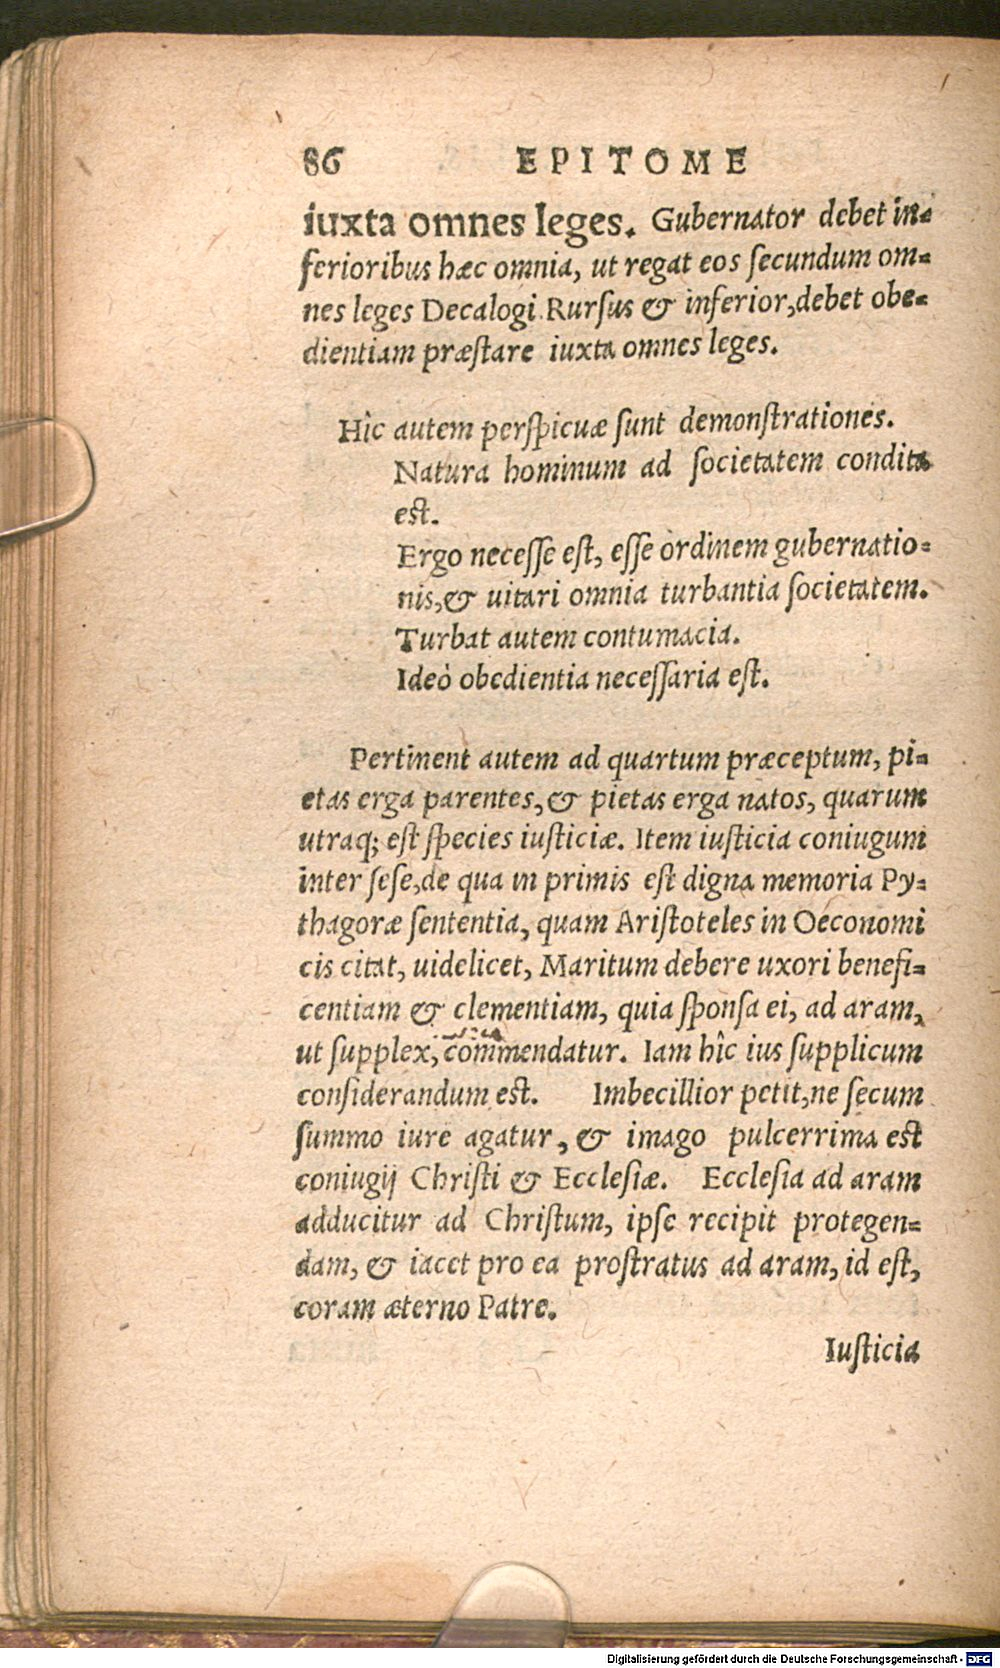 86 EPITOME
iuxta omnes leges. Gubernator debet in-
ferioribus hæc omnia, ut regat eos secundum om-
nes leges Decalogi. Rursus & inferior, debet obe-
dientiam præstare iuxta omnes leges.
Hîc autem perspicuæ sunt demonstrationes.
Natura hominum ad societatem condita
est.
Ergo necesse est, esse ordinem gubernatio-
nis, & uitari omnia turbantia societatem.
Turbat autem contumacia.
Ideò obedientia necessaria est.
Pertinent autem ad quartum præceptum, pi-
etas erga parentes, & pietas erga natos, quarum
utraq; est species iusticiæ. Item iusticia coniugum
inter sese, de qua in primis est digna memoria Py-
thagoræ sententia, quam Aristoteles in Oeconomi
cis citat, uidelicet, Maritum debere uxori benefi-
centiam & clementiam, quia sponsa ei, ad aram,
ut supplex, commendatur. Iam hîc ius supplicum
considerandum est. Imbecillior petit, ne secum
summo iure agatur, & imago pulcerrima est
coniugij Christi & Ecclesiæ. Ecclesia ad aram
adducitur ad Christum, ipse recipit protegen-
dam, & iacet pro ea prostratus ad aram, id est,
coram æterno Patre.
Iusticia
Digitalisierung gefördert durch die Deutsche Forschungsgemeinschaft - DFG